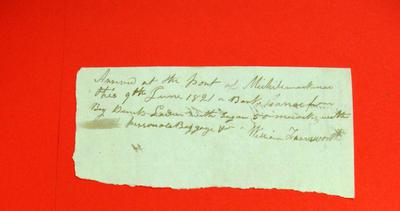 Arrived at the port of Michilimackinac
this 9th June 1821 a Bark Canoe from
Bay Laden with Sugar 50 mococks with
personal Baggage &c - William Farnsworth